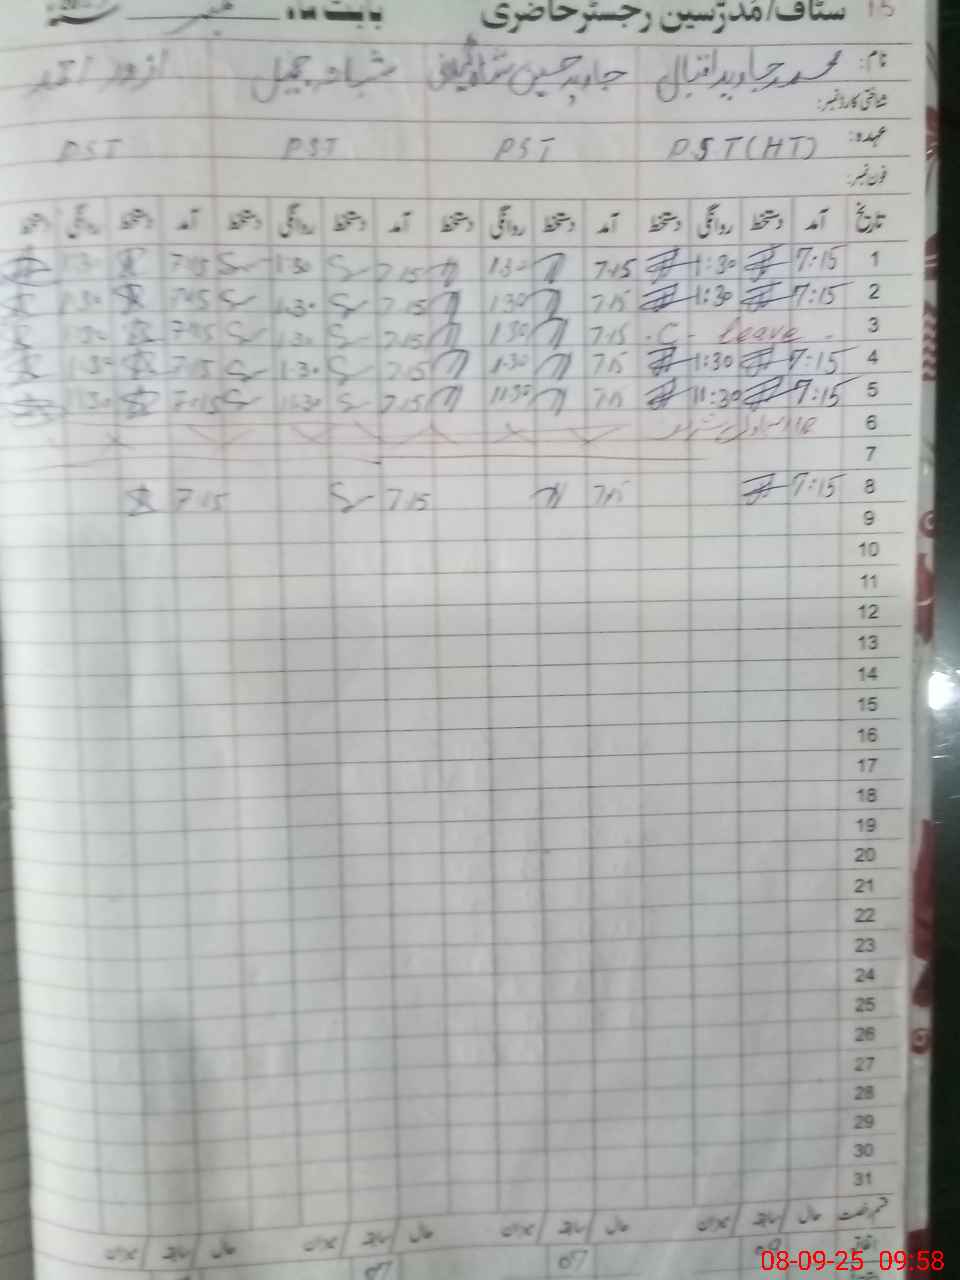 15 سٹاف/مدرسین رجسٹر حاضری بابت ماہ
نام: محمد جاوید اقبال جاوید حسین شبانہ جمیل
شناختی کارڈ نمبر:
عہدہ: PST (HT) PST PST PST
فون نمبر:
تاریخ آمد دستخط روانگی دستخط آمد دستخط روانگی دستخط آمد دستخط روانگی دستخط آمد دستخط روانگی دستخط
1 7:15 1:30 7:15 1:30 7:15 1:30 7:15 1:30
2 7:15 1:30 7:15 1:30 7:15 1:30 7:15 1:30
3 C - leave - 7:15 1:30 7:15 1:30 7:15 1:30
4 7:15 1:30 7:15 1:30 7:15 1:30 7:15 1:30
5 7:15 11:30 7:15 11:30 7:15 11:30 7:15 11:30
6
7
8 7:15 7:15 7:15 7:15
9
10
11
12
13
14
15
16
17
18
19
20
21
22
23
24
25
26
27
28
29
30
31
قسم رخصت حال سابقہ میزان حال سابقہ میزان حال سابقہ میزان حال سابقہ میزان
اتفاقیہ 08 07 07
08-09-25 09:58